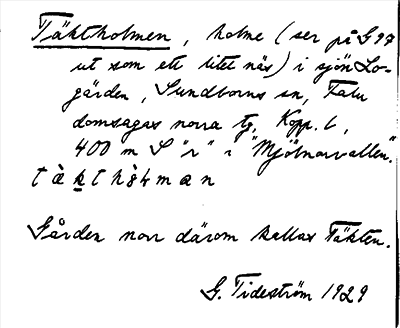 Täktholmen, holme (ser på G 97
ut som ett litet näs) i sjön Lo-
gärden, Sundborns sn, Falu
domsagas norra tg, Kopp. l,
400 m S "r" i "Mjölnarvallen".
Gården norr därom kallas Täkten.
G. Tideström 1929